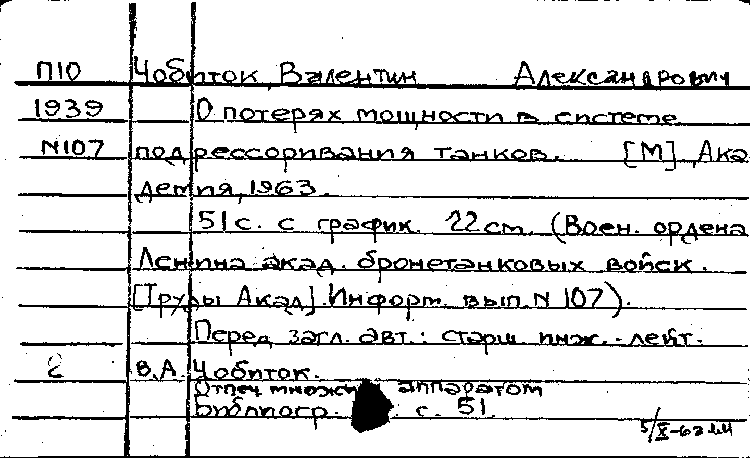 П10 Чобиток, Валентин Александрович
1939 О потерях мощности в системе
N107 подрессоривания танков. [М], Ака
демия, 1963.
51 с. с график. 22 см. (Воен. ордена
Ленина акад. бронетанковых войск.
[Труды Акад]. Информ. вып. N 107).
Перед загл. авт.: старш. инж.-лейт.
2 В.А. Чобиток.
Отпеч множит аппаратом
Библиогр. с. 51.